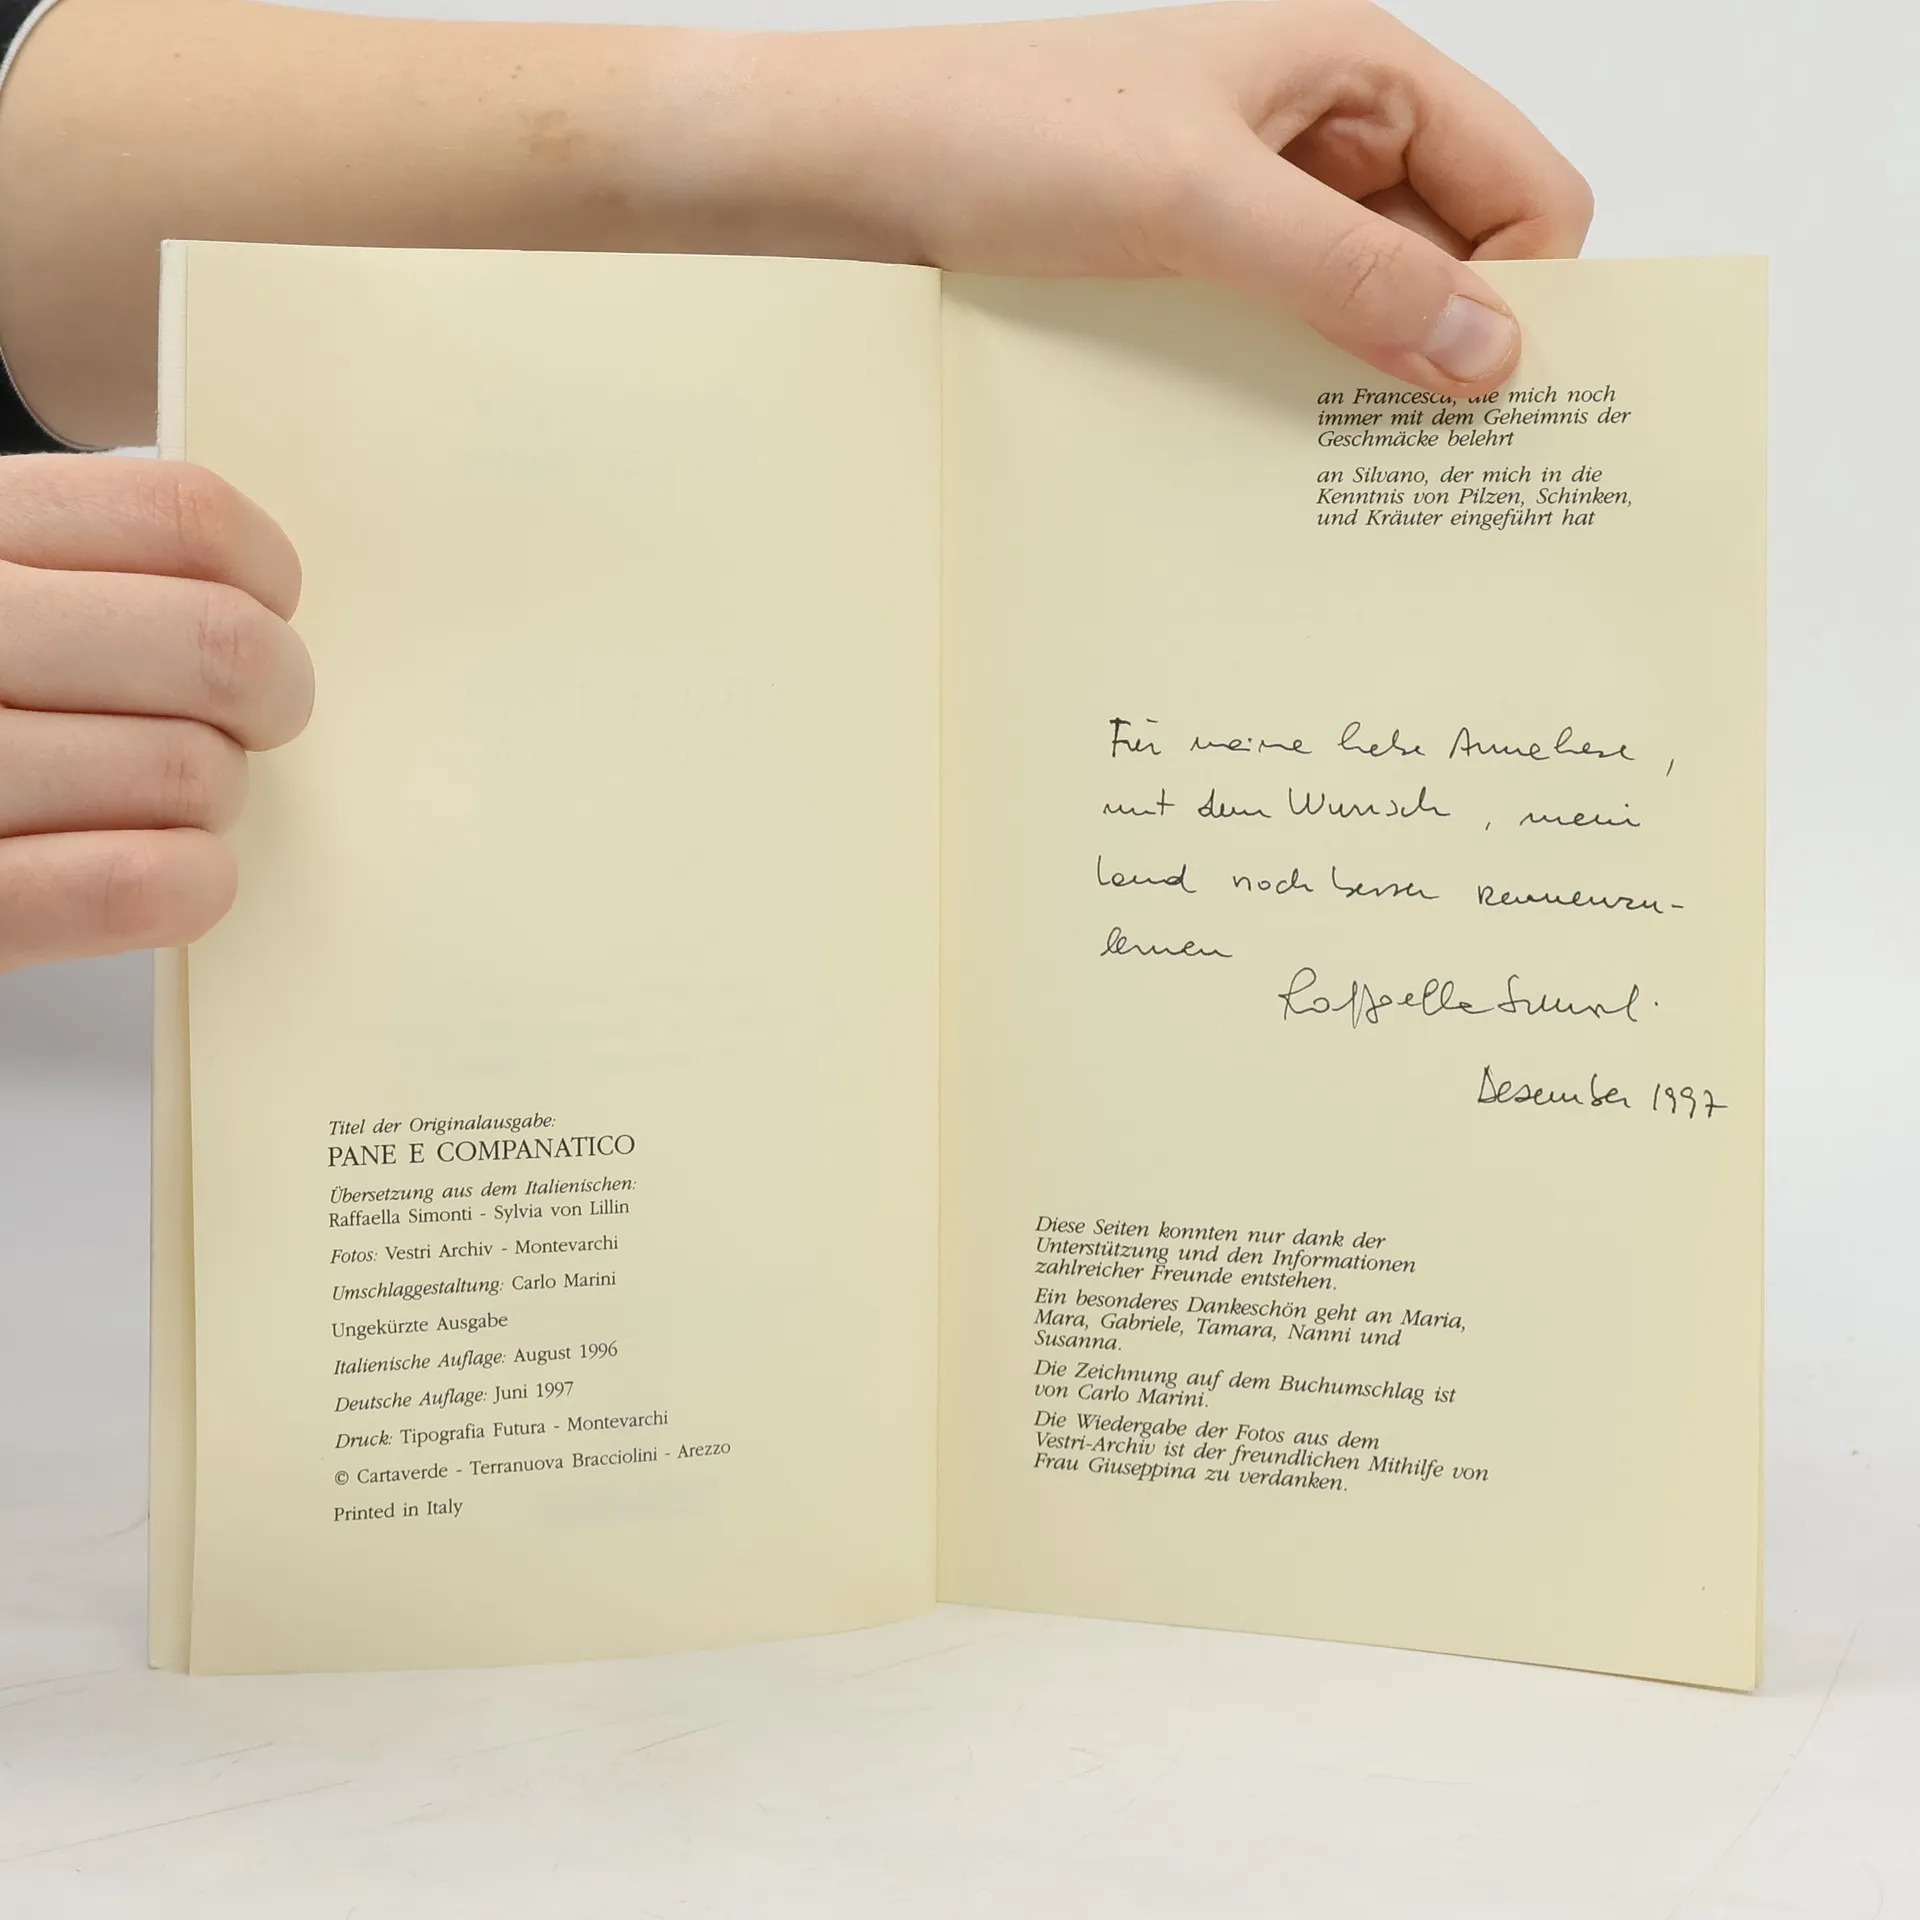 Titel der Originalausgabe:
PANE E COMPANATICO
Übersetzung aus dem Italienischen:
Raffaella Simonti - Sylvia von Lillin
Fotos: Vestri Archiv - Montevarchi
Umschlaggestaltung: Carlo Marini
Ungekürzte Ausgabe
Italienische Auflage: August 1996
Deutsche Auflage: Juni 1997
Druck: Tipografia Futura - Montevarchi
© Cartaverde - Terranuova Bracciolini - Arezzo
Printed in Italy
an Francesca, die mich noch
immer mit dem Geheimnis der
Geschmäcke belehrt
an Silvano, der mich in die
Kenntnis von Pilzen, Schinken,
und Kräuter eingeführt hat
Für meine liebe Anneliese,
mit dem Wunsch, mein
Land noch besser kennenzu-
lernen
Raffaella Simonti
Desember 1997
Diese Seiten konnten nur dank der
Unterstützung und den Informationen
zahlreicher Freunde entstehen.
Ein besonderes Dankeschön geht an Maria,
Mara, Gabriele, Tamara, Nanni und
Susanna.
Die Zeichnung auf dem Buchumschlag ist
von Carlo Marini.
Die Wiedergabe der Fotos aus dem
Vestri-Archiv ist der freundlichen Mithilfe von
Frau Giuseppina zu verdanken.